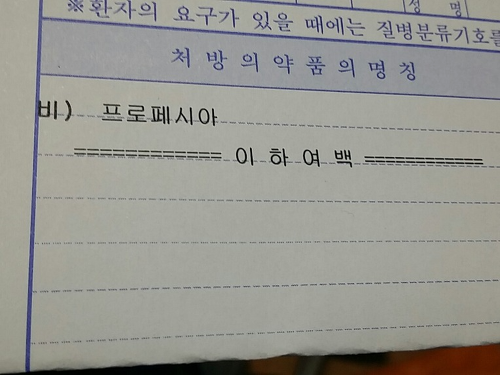 성 명
※환자의 요구가 있을 때에는 질병분류기호를
처 방 의 약 품 의 명 칭
비) 프로페시아
============ 이 하 여 백 ============